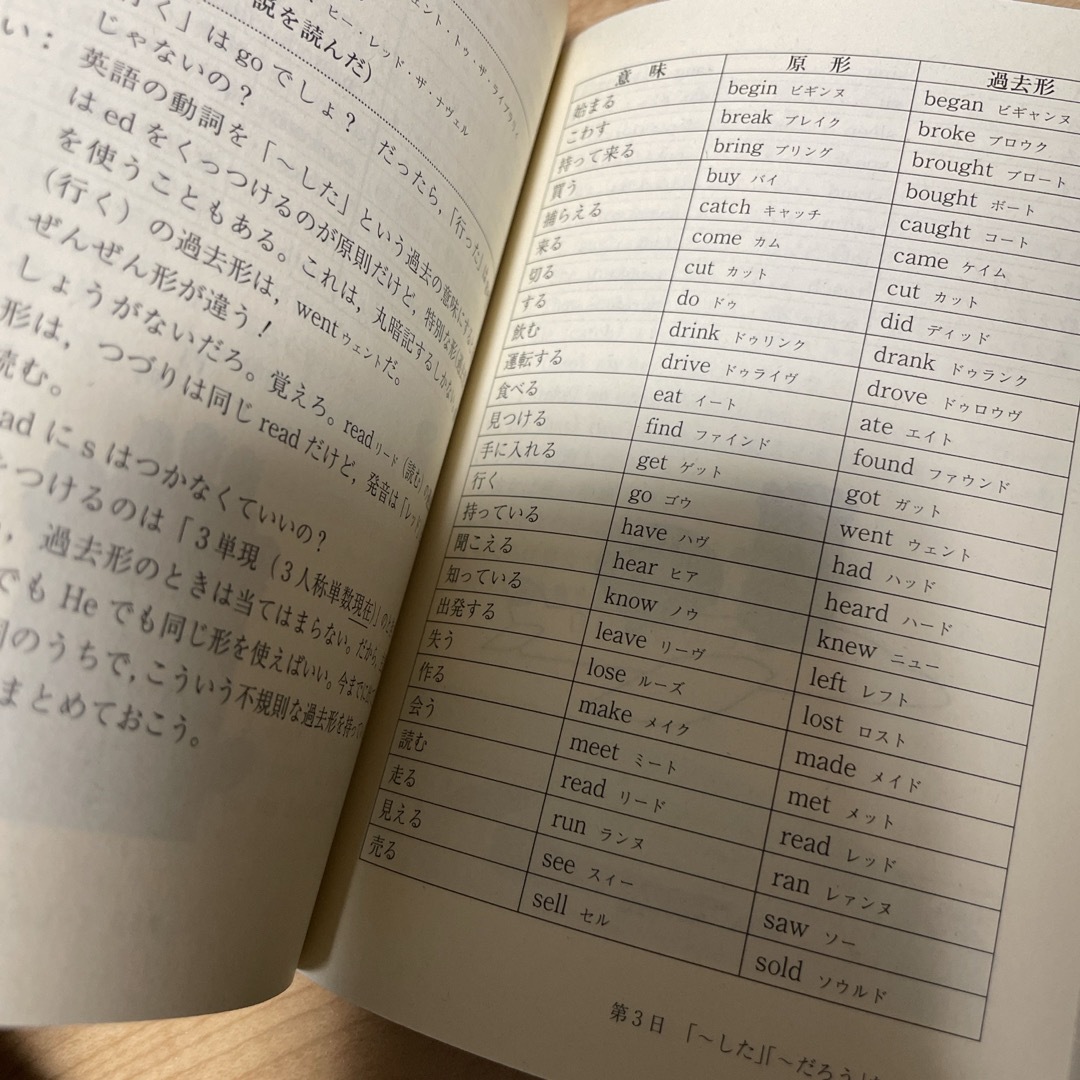 ェント・トゥ・ザ・ライブラリィ
ヒー・レッド・ザ・ナヴェル
説を読んだ)
行く」はgoでしょ？ だったら，「行った」は
じゃないの？
い：英語の動詞を「～した」という過去の意味にする
はedをくっつけるのが原則だけど，特別な形
を使うこともある。これは，丸暗記するしかない
(行く)の過去形は，went ウェントだ。
ぜんぜん形が違う！
しょうがないだろ。覚えろ。read リード (読む)
形は，つづりは同じreadだけど，発音は「レッド
読む。
adにsはつかなくていいの？
つけるのは「3単現(3人称単数現在)」の
，過去形のときは当てはまらない。だから，
でもHeでも同じ形を使えばいい。今までに
のうちで，こういう不規則な過去形を持って
まとめておこう。
意味 原形 過去形
始まる begin ビギンヌ began ビギャンヌ
こわす break ブレイク broke ブロウク
持って来る bring ブリング brought ブロート
買う buy バイ bought ボート
捕らえる catch キャッチ caught コート
来る come カム came ケイム
切る cut カット cut カット
する do ドゥ did ディッド
飲む drink ドゥリンク drank ドゥランク
運転する drive ドゥライヴ drove ドゥロウヴ
食べる eat イート ate エイト
見つける find ファインド found ファウンド
手に入れる get ゲット got ガット
行く go ゴウ went ウェント
持っている have ハヴ had ハッド
聞こえる hear ヒア heard ハード
知っている know ノウ knew ニュー
出発する leave リーヴ left レフト
失う lose ルーズ lost ロスト
作る make メイク made メイド
会う meet ミート met メット
読む read リード read レッド
走る run ランヌ ran レァンヌ
見える see スィー saw ソー
売る sell セル sold ソウルド
第3日 「～した」「～だろう」